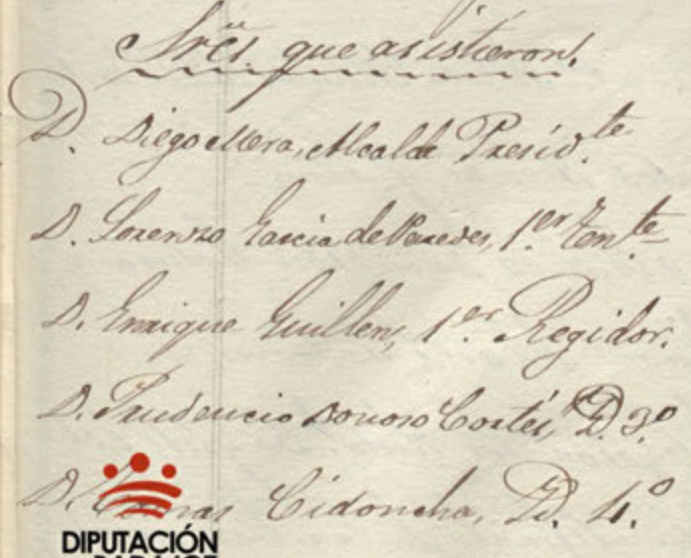 Sres. que asistieron.
D. Diego Mera, Alcalde Presid.te
D. Lorenzo Garcia de Paredes, 1.er Ten.te
D. Enrique Guillen, 1.er Regidor.
D. Prudencio Donoso Cortés, D. 3.º
D. Cidoncha, D. 4.º
DIPUTACIÓN